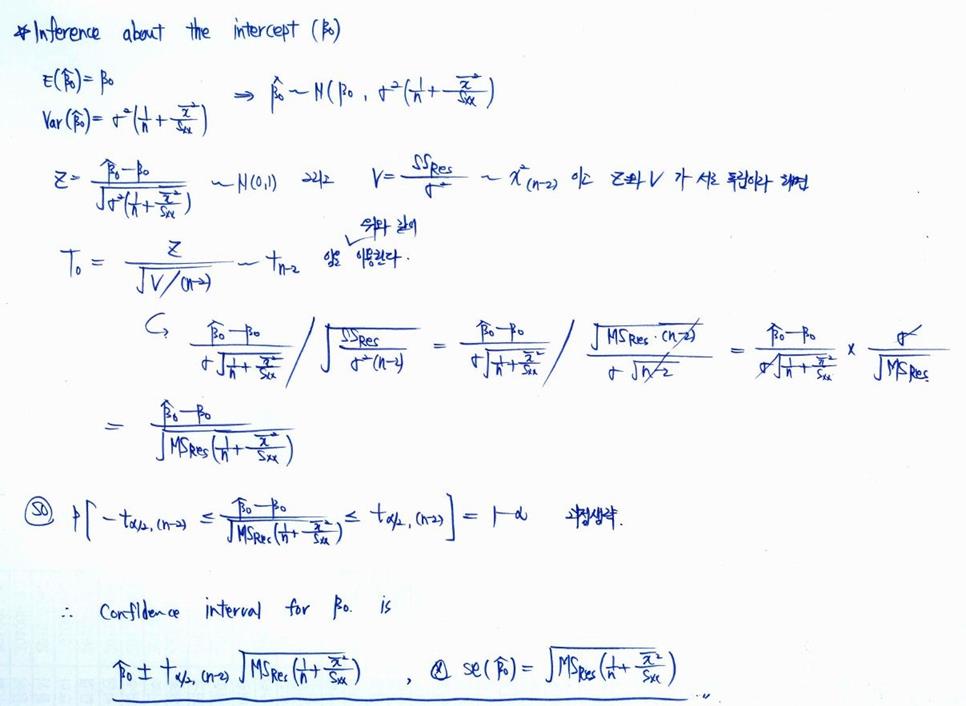 * Inference about the intercept (β₀)
E(β̂₀) = β₀
Var(β̂₀) = σ²(1/n + x̄²/Sxx) ⇒ β̂₀ ~ N(β₀, σ²(1/n + x̄²/Sxx)
Z = (β̂₀ - β₀) / √(σ²(1/n + x̄²/Sxx)) ~ N(0,1) 그리고 V = SSRes/σ² ~ χ²(n-2) 이고 Z와 V 가 서로 독립이라 하면
위와 같이
T₀ = Z / √(V/(n-2)) ~ tn-2 임을 이용한다.
↳ (β̂₀ - β₀) / (σ√(1/n + x̄²/Sxx)) / √(SSRes / (σ²(n-2))) = (β̂₀ - β₀) / (σ√(1/n + x̄²/Sxx)) / (√(MSRes·(n-2)) / (σ√(n-2))) = (β̂₀ - β₀) / (σ√(1/n + x̄²/Sxx)) × σ/√MSRes
= (β̂₀ - β₀) / √(MSRes(1/n + x̄²/Sxx))
SO P[-tα/2, (n-2) ≤ (β̂₀ - β₀) / √(MSRes(1/n + x̄²/Sxx)) ≤ tα/2, (n-2)] = 1-α 과정생략.
∴ Confidence interval for β₀. is
β̂₀ ± tα/2, (n-2) √(MSRes(1/n + x̄²/Sxx)) , se(β̂₀) = √(MSRes(1/n + x̄²/Sxx))